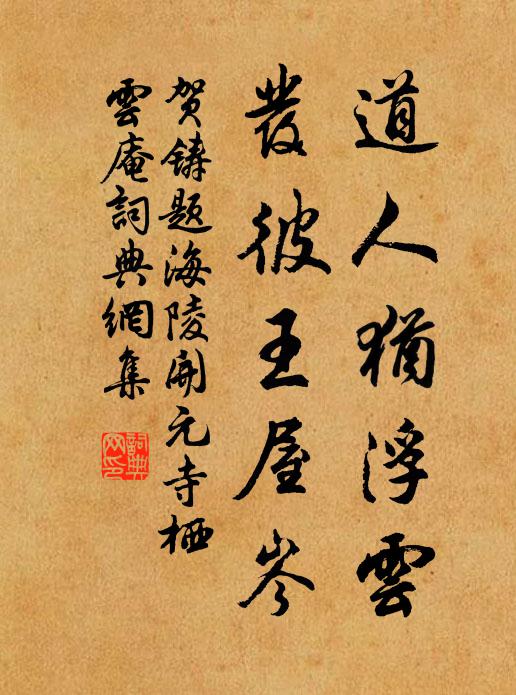 道人猶浮雲
發彼王屋岑
贺鑄题海陵開元寺栖
雲庵詞典網集
詞典网印